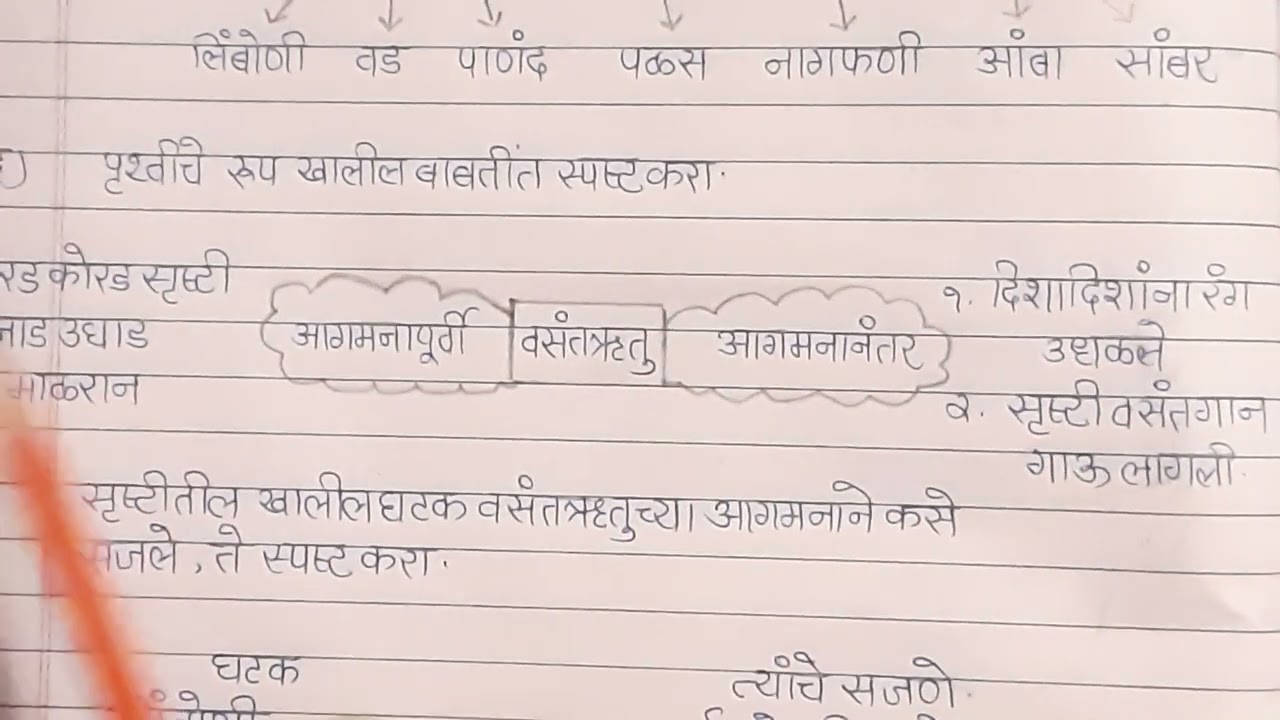 लिंबोणी वड पाणंद पळस नागफणी आंबा सांबर
पृथ्वीचे रूप खालील बाबतीत स्पष्ट करा.
कोरड सृष्टी
उघाड
माळरान
आगमनापूर्वी वसंतऋतु आगमनानंतर
१. दिशादिशांना रंग
उधळले
२. सृष्टी वसंतगान
गाऊ लागली.
सृष्टीतील खालील घटक वसंतऋतुच्या आगमनाने कसे
सजले, ते स्पष्ट करा.
घटक त्यांचे सजणे.